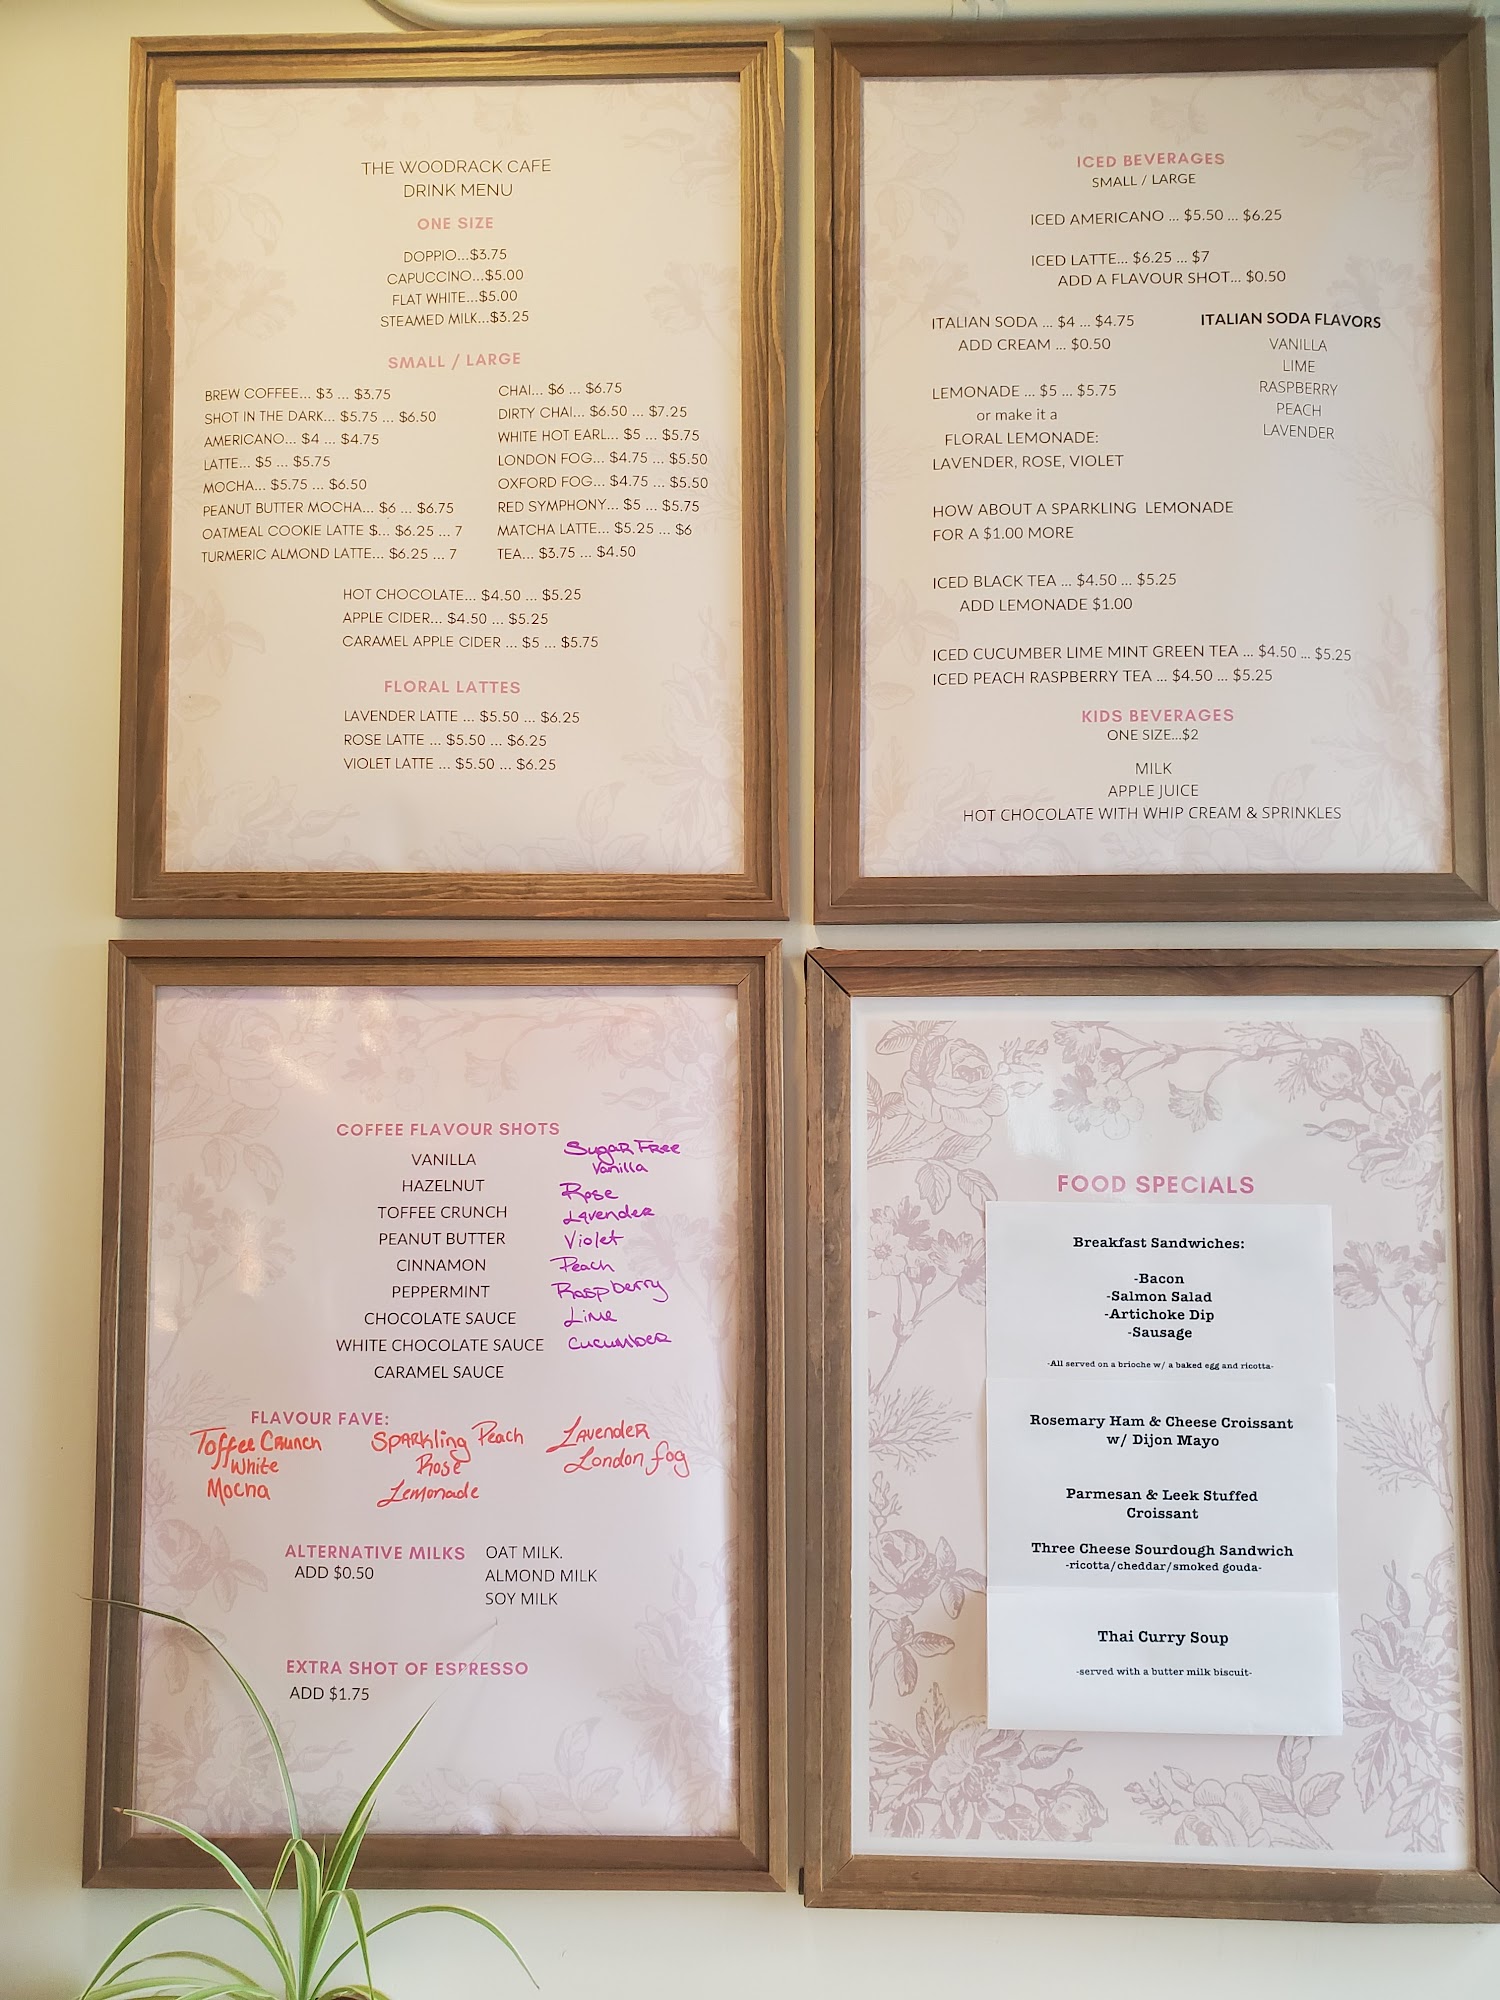 THE WOODRACK CAFE
DRINK MENU
ONE SIZE
DOPPIO...$3.75
CAPUCCINO...$5.00
FLAT WHITE...$5.00
STEAMED MILK...$3.25
SMALL / LARGE
BREW COFFEE... $3 ... $3.75
SHOT IN THE DARK... $5.75 ... $6.50
AMERICANO... $4 ... $4.75
LATTE... $5 ... $5.75
MOCHA... $5.75 ... $6.50
PEANUT BUTTER MOCHA... $6 ... $6.75
OATMEAL COOKIE LATTE $... $6.25 ... 7
TURMERIC ALMOND LATTE... $6.25 ... 7
CHAI... $6 ... $6.75
DIRTY CHAI... $6.50 ... $7.25
WHITE HOT EARL... $5 ... $5.75
LONDON FOG... $4.75 ... $5.50
OXFORD FOG... $4.75 ... $5.50
RED SYMPHONY... $5 ... $5.75
MATCHA LATTE... $5.25 ... $6
TEA... $3.75 ... $4.50
HOT CHOCOLATE... $4.50 ... $5.25
APPLE CIDER... $4.50 ... $5.25
CARAMEL APPLE CIDER ... $5 ... $5.75
FLORAL LATTES
LAVENDER LATTE ... $5.50 ... $6.25
ROSE LATTE ... $5.50 ... $6.25
VIOLET LATTE ... $5.50 ... $6.25
ICED BEVERAGES
SMALL / LARGE
ICED AMERICANO ... $5.50 ... $6.25
ICED LATTE... $6.25 ... $7
ADD A FLAVOUR SHOT... $0.50
ITALIAN SODA ... $4 ... $4.75
ADD CREAM ... $0.50
ITALIAN SODA FLAVORS
VANILLA
LIME
RASPBERRY
PEACH
LAVENDER
LEMONADE ... $5 ... $5.75
or make it a
FLORAL LEMONADE:
LAVENDER, ROSE, VIOLET
HOW ABOUT A SPARKLING LEMONADE
FOR A $1.00 MORE
ICED BLACK TEA ... $4.50 ... $5.25
ADD LEMONADE $1.00
ICED CUCUMBER LIME MINT GREEN TEA ... $4.50 ... $5.25
ICED PEACH RASPBERRY TEA ... $4.50 ... $5.25
KIDS BEVERAGES
ONE SIZE...$2
MILK
APPLE JUICE
HOT CHOCOLATE WITH WHIP CREAM & SPRINKLES
COFFEE FLAVOUR SHOTS
VANILLA
HAZELNUT
TOFFEE CRUNCH
PEANUT BUTTER
CINNAMON
PEPPERMINT
CHOCOLATE SAUCE
WHITE CHOCOLATE SAUCE
CARAMEL SAUCE
Sugar Free
Vanilla
Rose
Lavender
Violet
Peach
Raspberry
Lime
Cucumber
FLAVOUR FAVE:
Toffee Crunch
White
Mocha
Sparkling Peach
Rose
Lemonade
Lavender
London fog
ALTERNATIVE MILKS
ADD $0.50
OAT MILK.
ALMOND MILK
SOY MILK
EXTRA SHOT OF ESPRESSO
ADD $1.75
FOOD SPECIALS
Breakfast Sandwiches:
-Bacon
-Salmon Salad
-Artichoke Dip
-Sausage
-All served on a brioche w/ a baked egg and ricotta-
Rosemary Ham & Cheese Croissant
w/ Dijon Mayo
Parmesan & Leek Stuffed
Croissant
Three Cheese Sourdough Sandwich
-ricotta/cheddar/smoked gouda-
Thai Curry Soup
-served with a butter milk biscuit-